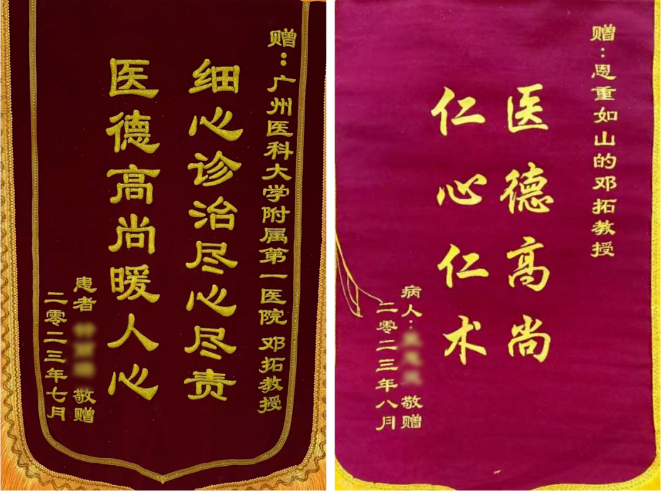 赠：广州医科大学附属第一医院 邓拓教授
细心诊治尽心尽责
医德高尚暖人心
患者 敬赠
二零二三年七月
赠：恩重如山的邓拓教授
医德高尚
仁心仁术
病人： 敬赠
二零二三年八月